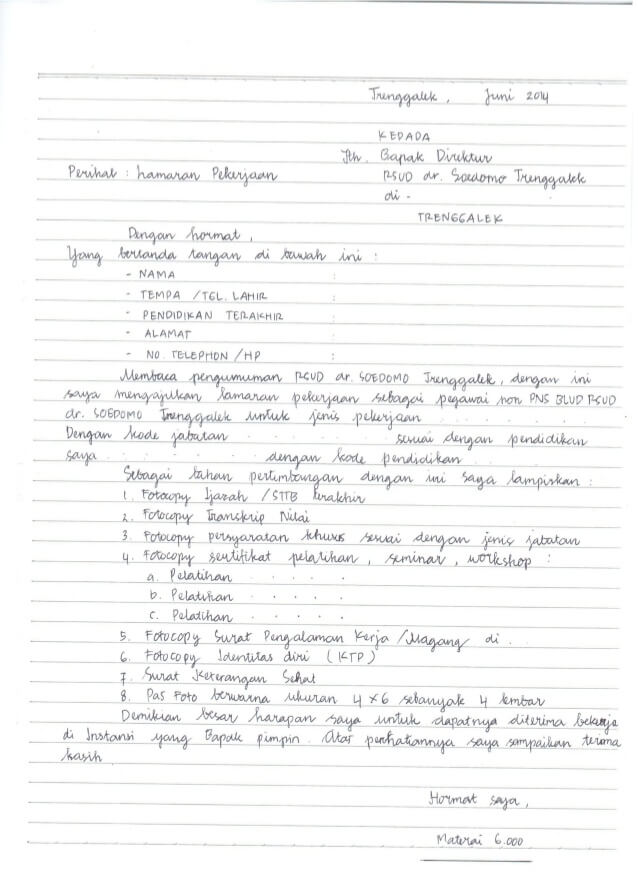 Trenggalek, Juni 2014
KEPADA
Yth. Bapak Direktur
Perihal : Lamaran Pekerjaan RSUD dr. Soedomo Trenggalek
di -
TRENGGALEK
Dengan hormat,
Yang bertanda tangan di bawah ini :
- NAMA :
- TEMPA /TGL. LAHIR :
- PENDIDIKAN TERAKHIR :
- ALAMAT :
- NO. TELEPHON /HP :
Membaca pengumuman RSUD dr. SOEDOMO Trenggalek, dengan ini
saya mengajukan lamaran pekerjaan sebagai pegawai non PNS BLUD RSUD
dr. SOEDOMO Trenggalek untuk jenis pekerjaan . . . . . . .
Dengan kode jabatan . . . . . . . sesuai dengan pendidikan
saya . . . . . . . dengan kode pendidikan . . .
Sebagai bahan pertimbangan dengan ini saya lampirkan :
1. Fotocopy Ijazah /STTB terakhir
2. Fotocopy Transkrip Nilai
3. Fotocopy persyaratan khusus sesuai dengan jenis jabatan
4. Fotocopy sertifikat pelatihan, seminar, workshop :
a. Pelatihan . . . . .
b. Pelatihan . . . . .
c. Pelatihan . . . . .
5. Fotocopy Surat Pengalaman Kerja /Magang di . .
6. Fotocopy Identitas diri (KTP)
7. Surat Keterangan Sehat
8. Pas Foto berwarna ukuran 4x6 sebanyak 4 lembar
Demikian besar harapan saya untuk dapatnya diterima bekerja
di Instansi yang Bapak pimpin. Atas perhatiannya saya sampaikan terima
kasih
Hormat saya,
Materai 6.000